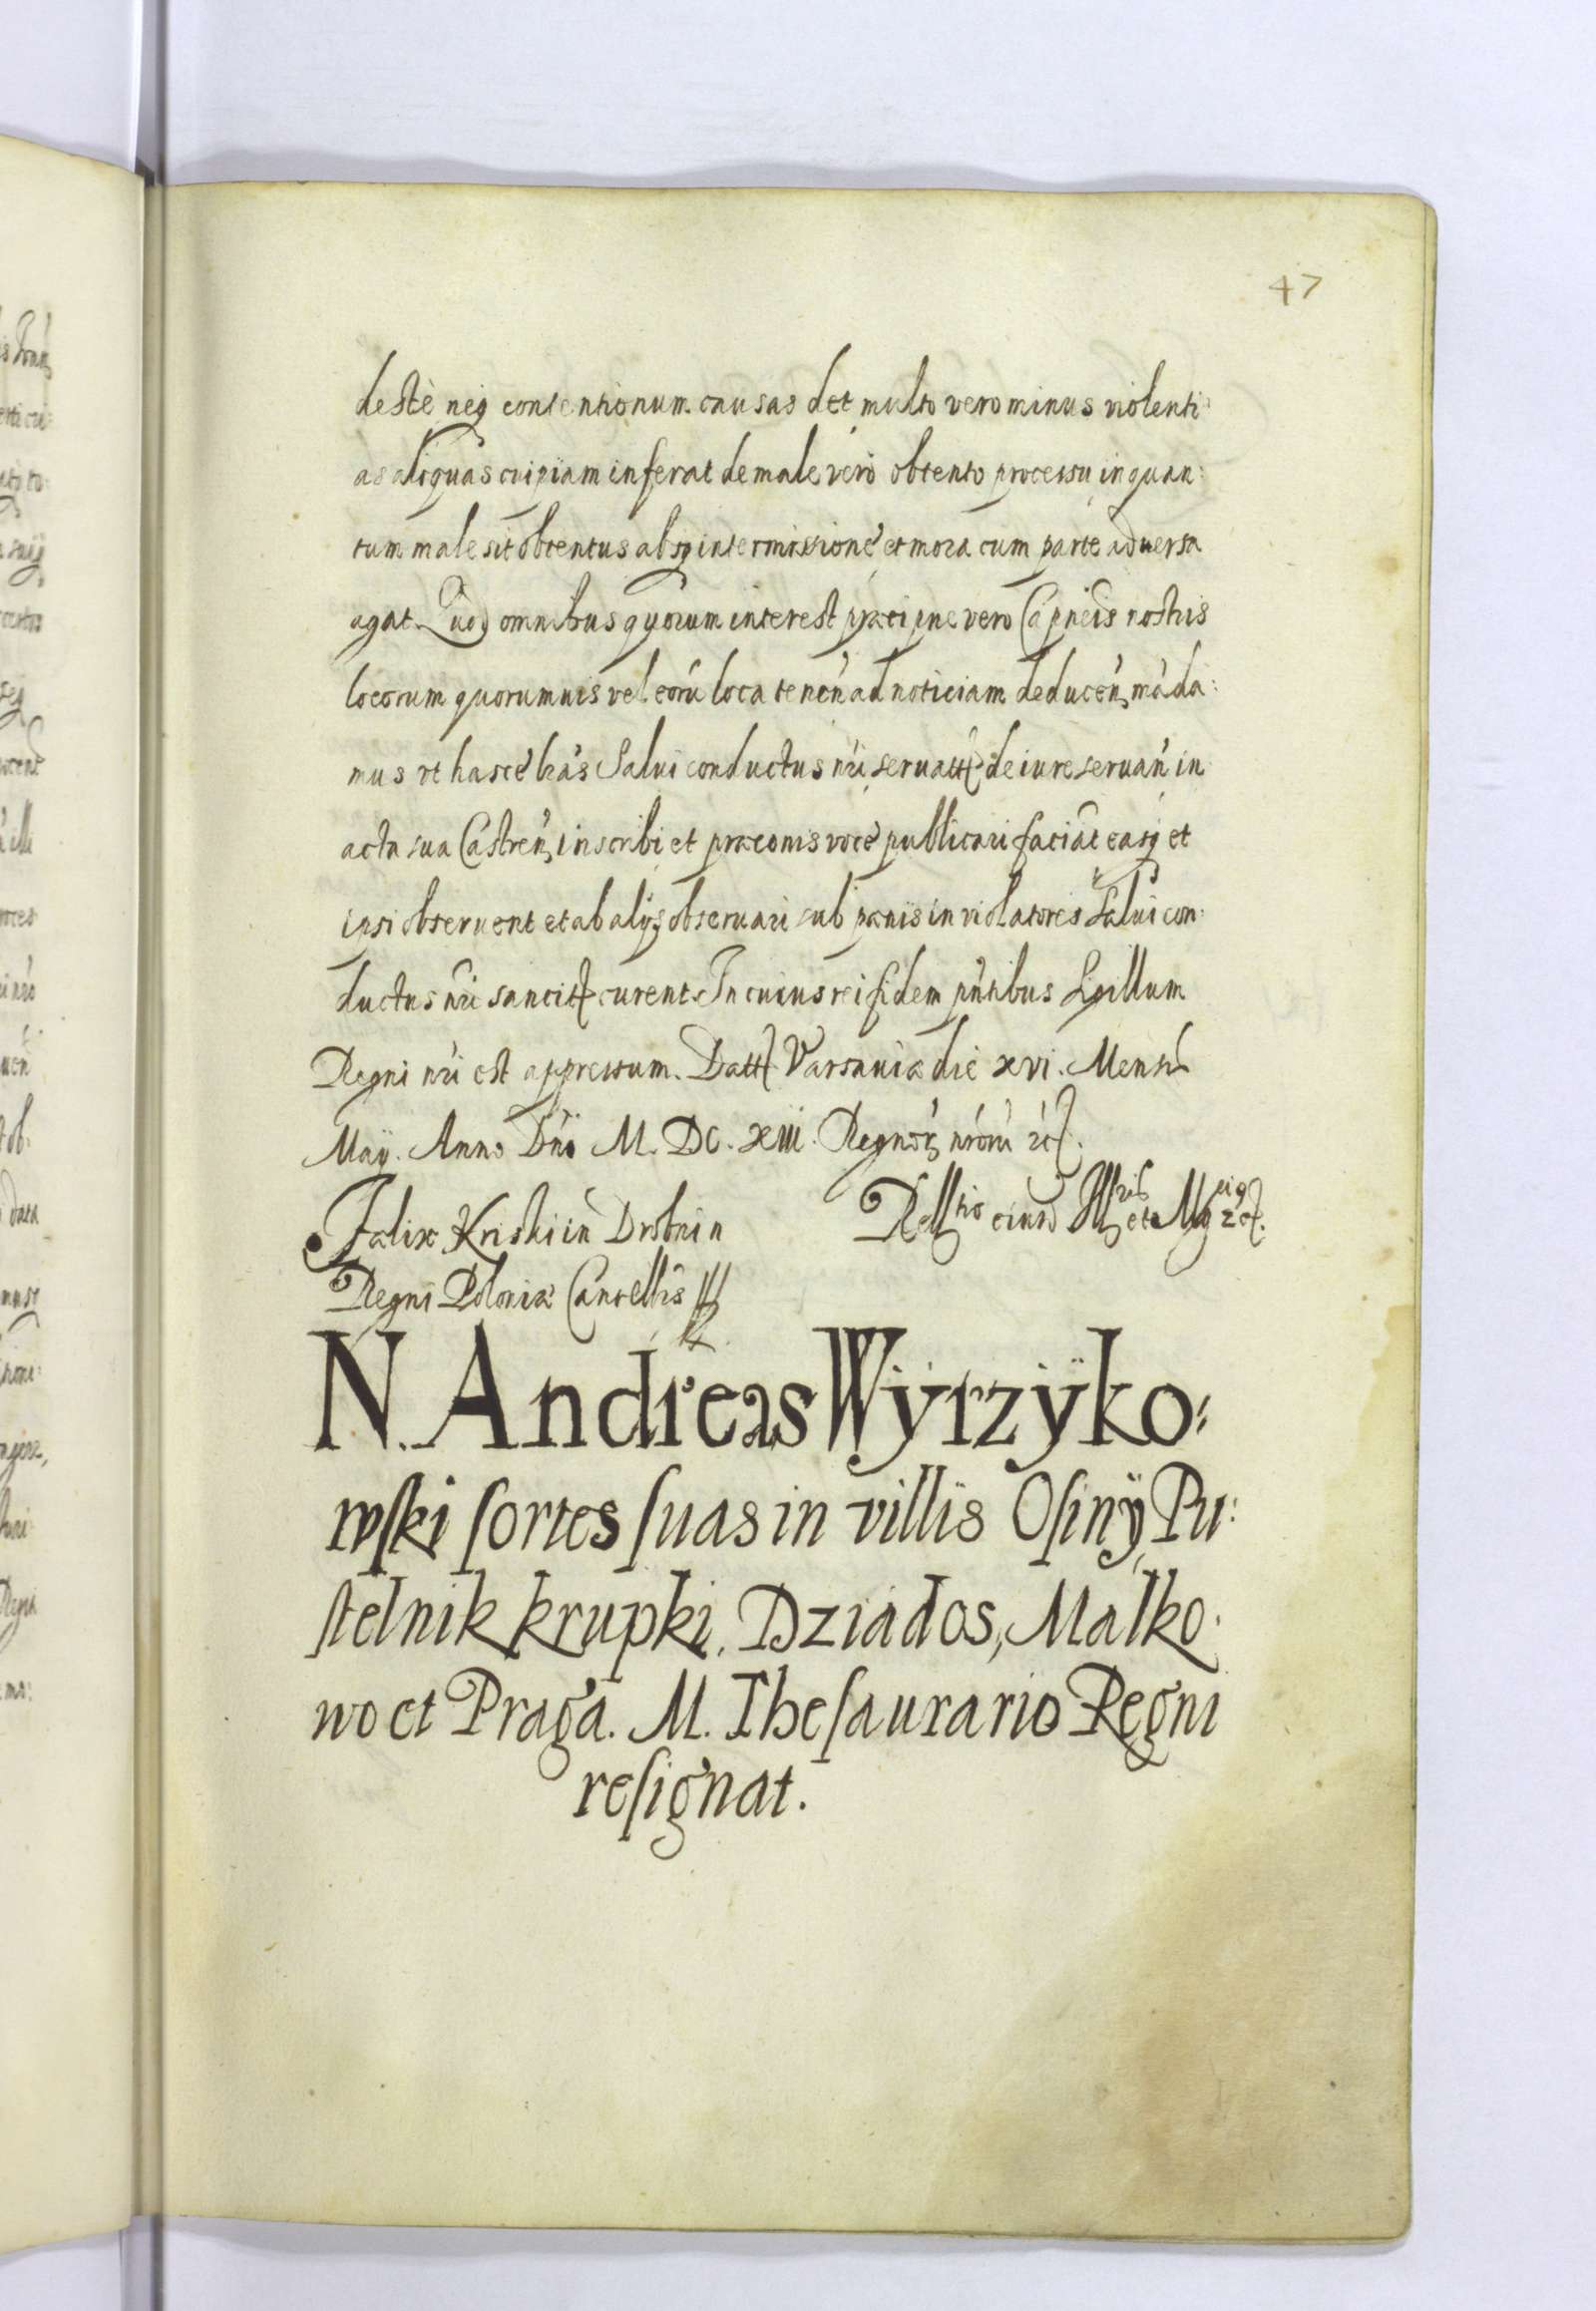 47
deste neq contentionum causas det multo vero minus violenti:
as aliquas cuipiam inferat de male vero obtento processu in quan:
tum male sit obtentus absq intermissione et mora cum parte adversa
agat. Quod omnibus quorum interest præcipue vero Capneis nostris
locorum quorumuis vel eorū loca tenen ad noticiam deducen mada:
mus vt hasce lras Salui conductus nri seruatt de iure seruan in
acta sua Castren inscribi et præconis voce publicari faciat easq et
ipsi obseruent et ab alijs obseruari sub pœnis in violatores Salui con:
ductus nri sancitt curent. In cuius rei fidem pntibus Sigillum
Regni nri est appressum. Datt Varsauiæ die xvi. Mensis
Maÿ. Anno Dni M. DC. xiii. Regnor nrorū etc.
Fælix Kriski in Drobnin
Relltio eiusd Illris et Mgci etc.
Regni Poloniæ Cancellrs
N. Andreas Wÿrzÿko:
wſki ſortes ſuas in villis Oſinÿ, Pu:
ſtelnik krupki, Dziados, Malko:
wo et Praga. M. Theſaurario Regni
reſignat.